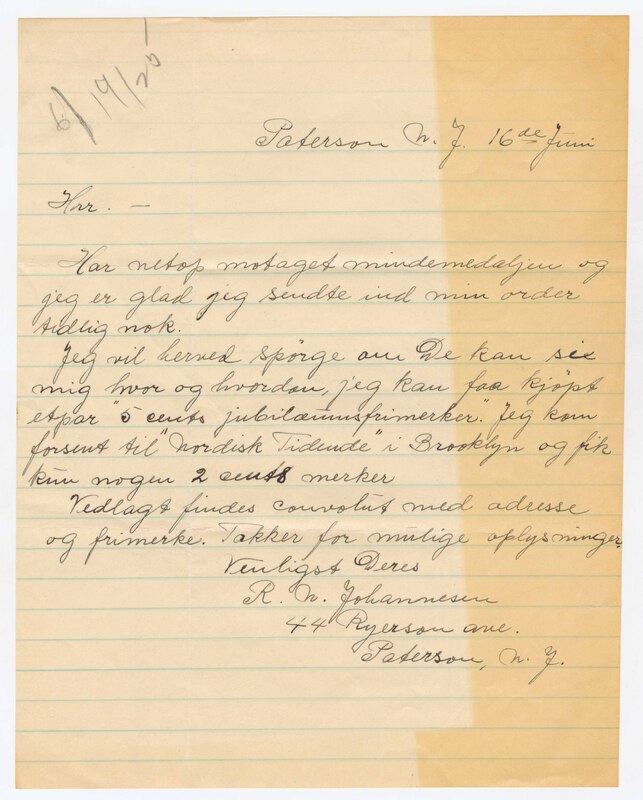 6/19/25
Paterson N. J. 16de Juni
Hrr. —
Har netop motaget mindemedaljen og
jeg er glad jeg sendte ind min order
tidlig nok.
Jeg vil herved spörge om De kan sie
mig hvor og hvordan, jeg kan faa kjöpt
etpar "5 cents jubilæumsfrimerker." Jeg kom
forsent til "Nordisk Tidende" i Brooklyn og fik
kun nogen 2 cents merker
Vedlagt findes convolut med adresse
og frimerke. Takker for mulige oplysninger.
Venligst Deres
R. N. Johannesen
44 Ryerson ave.
Paterson, N. J.